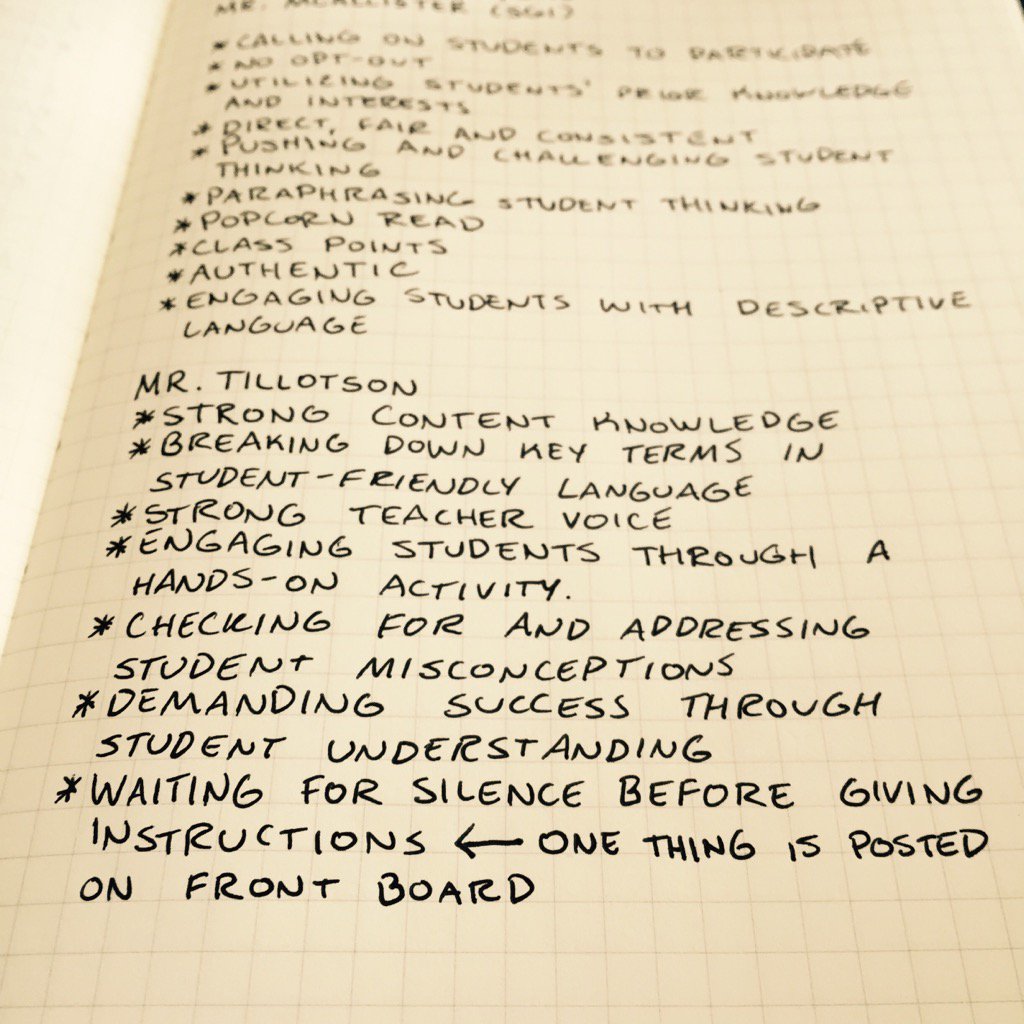 MR. MCALLISTER (SGI)
*CALLING ON STUDENTS TO PARTICIPATE
*NO OPT-OUT
*UTILIZING STUDENTS' PRIOR KNOWLEDGE
AND INTERESTS
*DIRECT, FAIR AND CONSISTENT
*PUSHING AND CHALLENGING STUDENT
THINKING
*PARAPHRASING STUDENT THINKING
*POPCORN READ
*CLASS POINTS
*AUTHENTIC
*ENGAGING STUDENTS WITH DESCRIPTIVE
LANGUAGE
MR. TILLOTSON
*STRONG CONTENT KNOWLEDGE
*BREAKING DOWN KEY TERMS IN
STUDENT-FRIENDLY LANGUAGE
*STRONG TEACHER VOICE
*ENGAGING STUDENTS THROUGH A
HANDS-ON ACTIVITY.
*CHECKING FOR AND ADDRESSING
STUDENT MISCONCEPTIONS
*DEMANDING SUCCESS THROUGH
STUDENT UNDERSTANDING
*WAITING FOR SILENCE BEFORE GIVING
INSTRUCTIONS ← ONE THING IS POSTED
ON FRONT BOARD